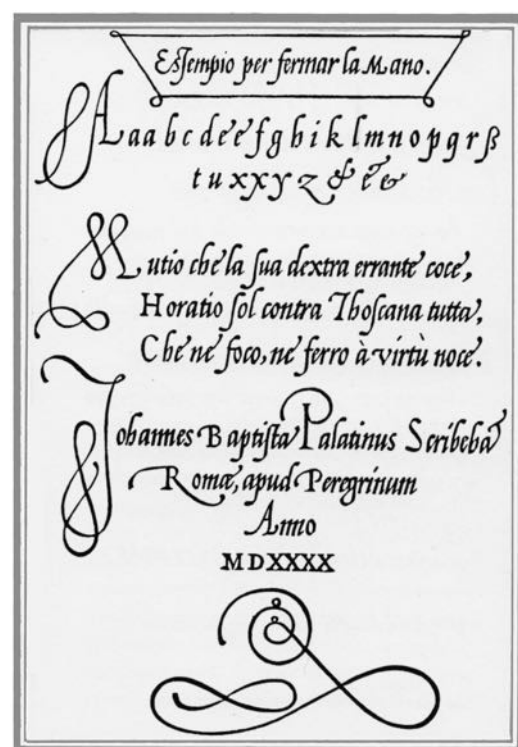 Essempio per fermar la Mano.
A a a b c d e e f g h i k l m n o p q r ſ ß
t u x x y z & & &
Mutio che la ſua dextra errante coce,
Horatio ſol contra Thoſcana tutta,
Che ne foco, ne ferro à virtù noce.
Johannes Baptiſta Palatinus Scribebat
Romæ, apud Peregrinum
Anno
MDXXXX